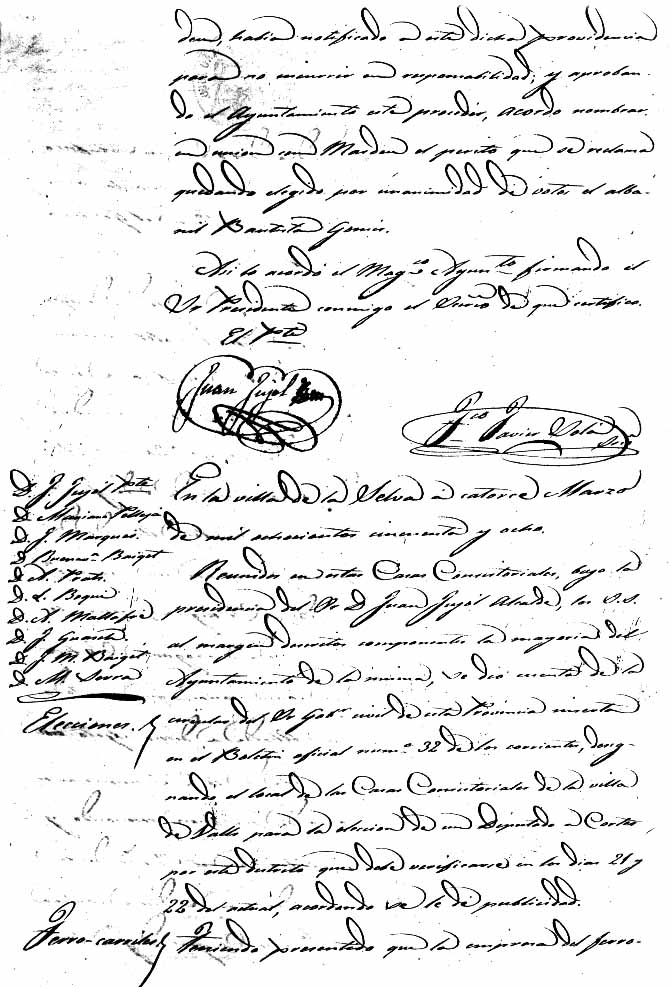 den, habia notificado a este dicha providencia
para no incurrir en reponsabilidad; y aproban-
do el Ayuntamiento este proceder, acordo nombrar
en union con Mardeu el perito que se reclama
quedando elegido por unanimidad de votos el alba-
nil Bautista
Asi lo acordó el Mag.co Ayun.to firmando el
Sr Presidente conmigo el Srio de que certifico.
El Pte
Juan Jujol
Fco Javier Solá Srio
D. J. Jujol Pte
D. Mariano Pellejá
D. J. Marques
D. Buenav.a Baiget
D. A. Prats
D. L. Boqué
D. A. Mallafré
D. J. Guasch
D. J. M. Baiget
D. M. Serra
En la villa de la Selva a catorce Marzo
de mil ochocientos cincuenta y ocho.
Reunidos en estas Casas Consistoriales, bajo la
presidencia del Sr D. Juan Jujol Alcalde, los S.S.
al margen descritos componentes la mayoria del
Ayuntamiento de la misma, se dió cuenta de la
Elecciones.
circular del Sr Gob.r civil de esta Provincia inserta
en el Boletin oficial num.o 32 de los corrientes, desig-
nando el local de las Casas Consistoriales de la villa
de Valls para la eleccion de un Deputado a Cortes,
por este distrito que debe verificarse en los dias 21 y
22 del actual, acordando se le dé publicidad.
Ferro-carriles
Teniendo presentado que la empresa del ferro-